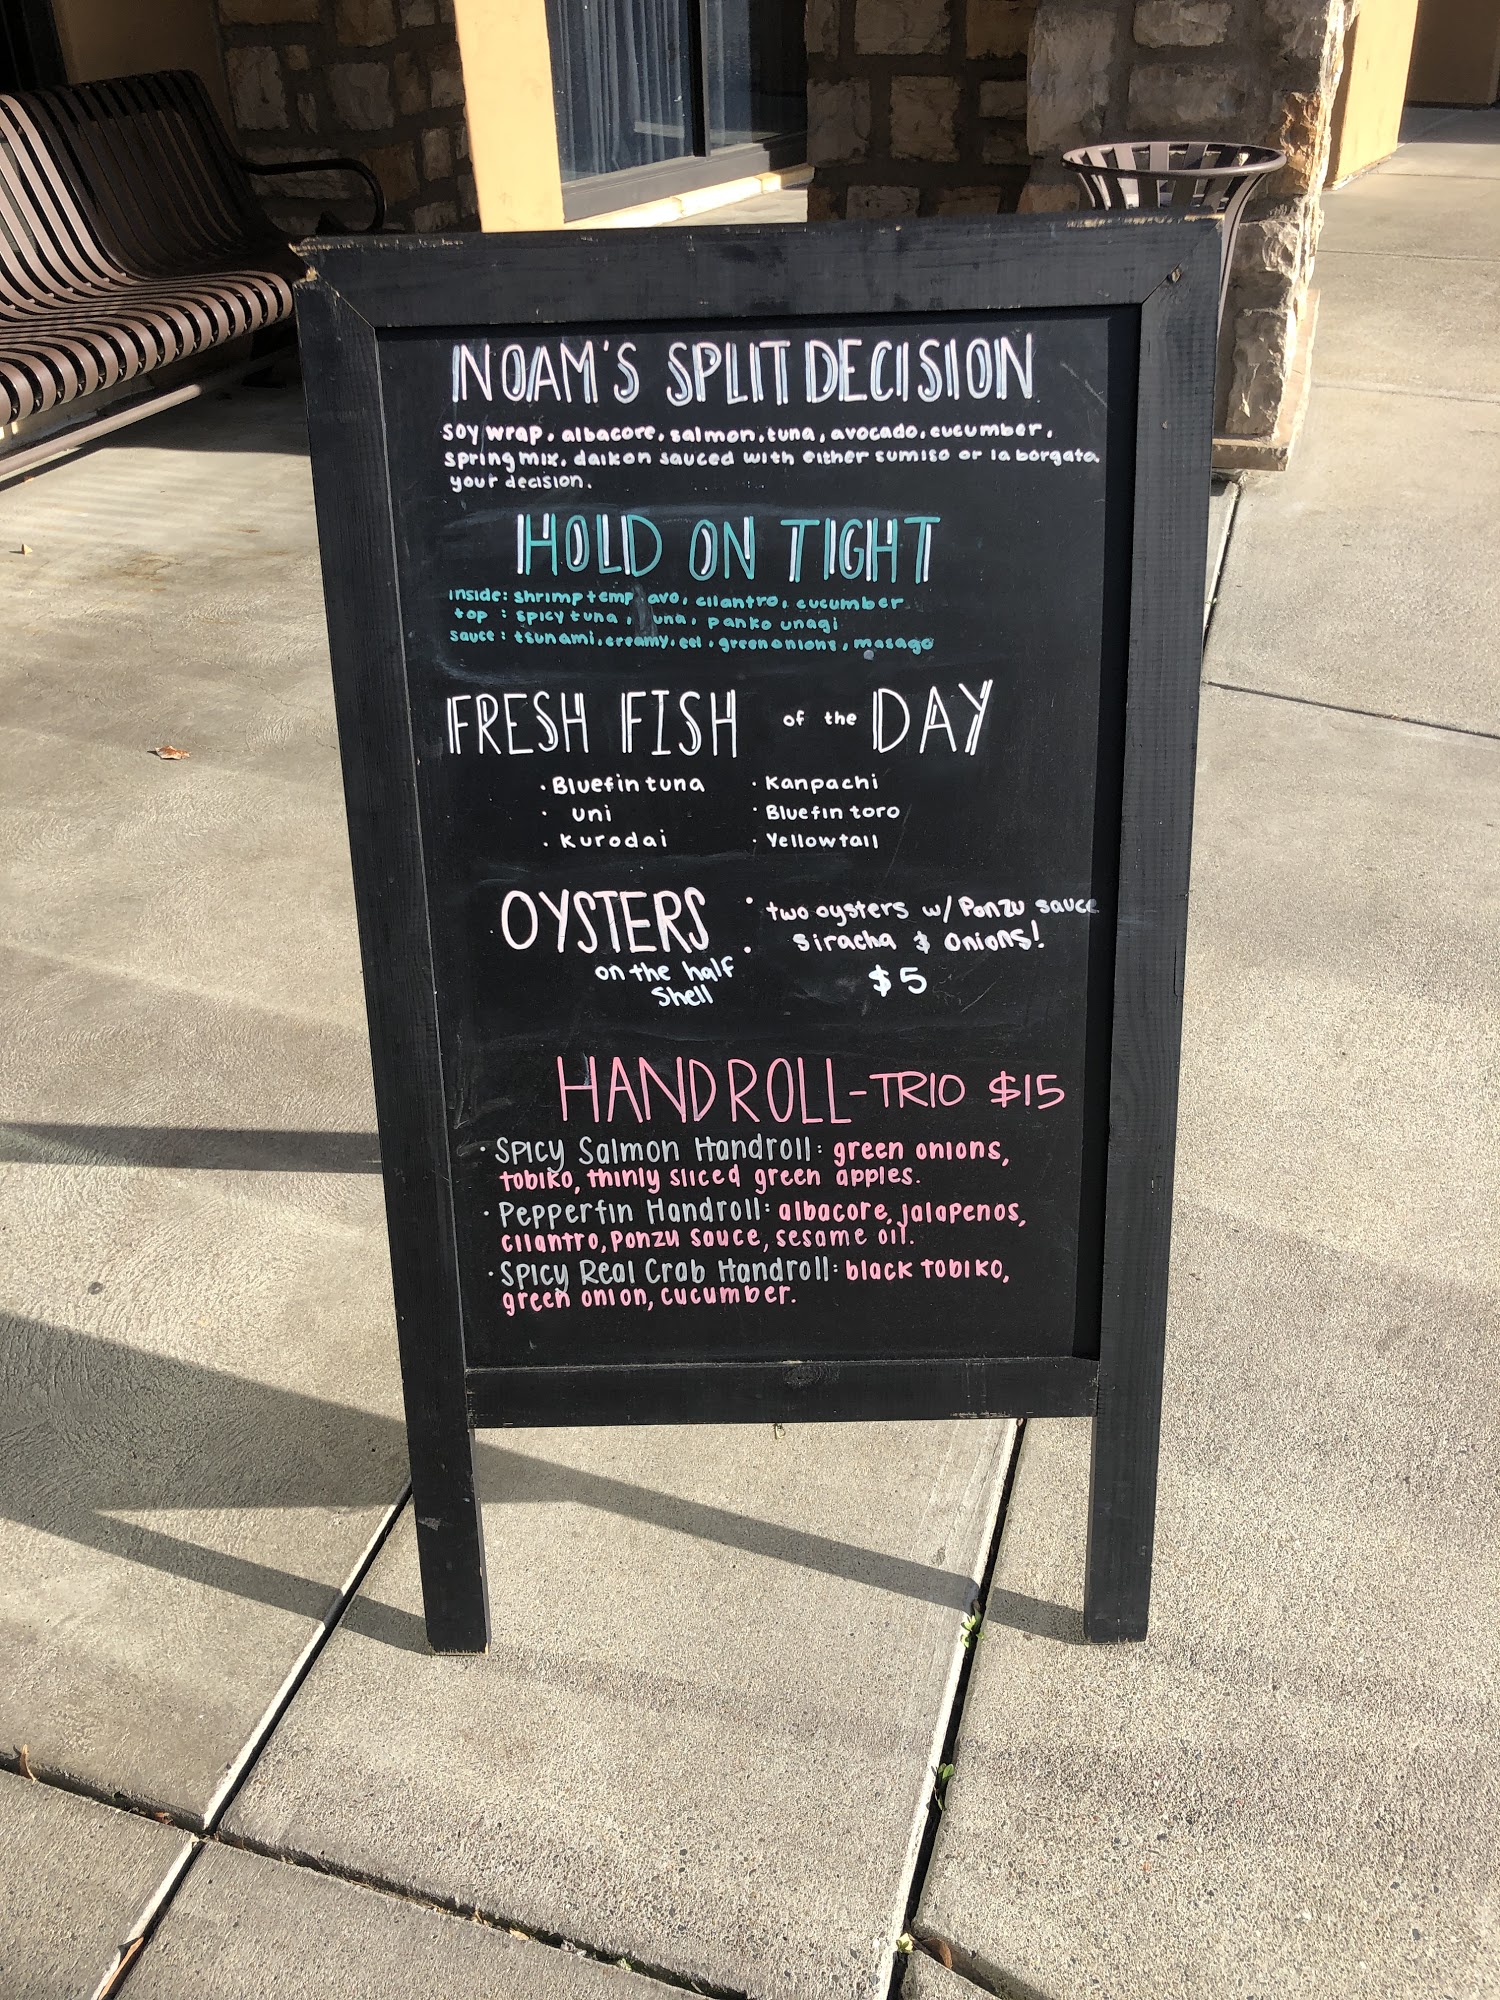 NOAM'S SPLIT DECISION
soy wrap, albacore, salmon, tuna, avocado, cucumber,
spring mix, daikon sauced with either sumiso or la borgata
your decision.
HOLD ON TIGHT
inside: shrimp temp avo, cilantro, cucumber
top : spicy tuna, una, panko unagi
sauce : tsunami, creamy, eel, green onions, masago
FRESH FISH of the DAY
· Bluefin tuna · Kanpachi
· uni · Bluefin toro
· Kurodai · Yellowtail
OYSTERS : two oysters w/ Ponzu sauce
on the half siracha & onions!
Shell $5
HANDROLL-TRIO $15
· Spicy Salmon Handroll: green onions,
tobiko, thinly sliced green apples.
· Pepperfin Handroll: albacore, jalapenos,
cilantro, ponzu sauce, sesame oil.
· Spicy Real Crab Handroll: black tobiko,
green onion, cucumber.